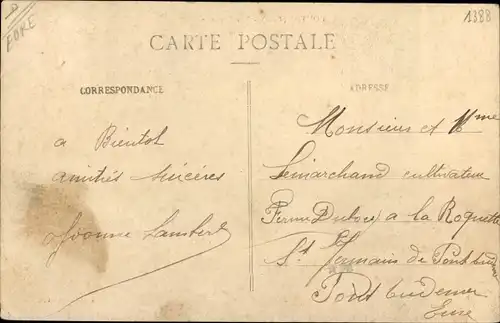 EURE
1388
CARTE POSTALE
CORRESPONDANCE
ADRESSE
a Bientot
amitiés sincères
Yvonne Lambert
Monsieur et Mme
Lemarchand cultivateur
Ferme Dubocs a la Roquette
St Germain de Pont Audemer
Pont Audemer
Eure